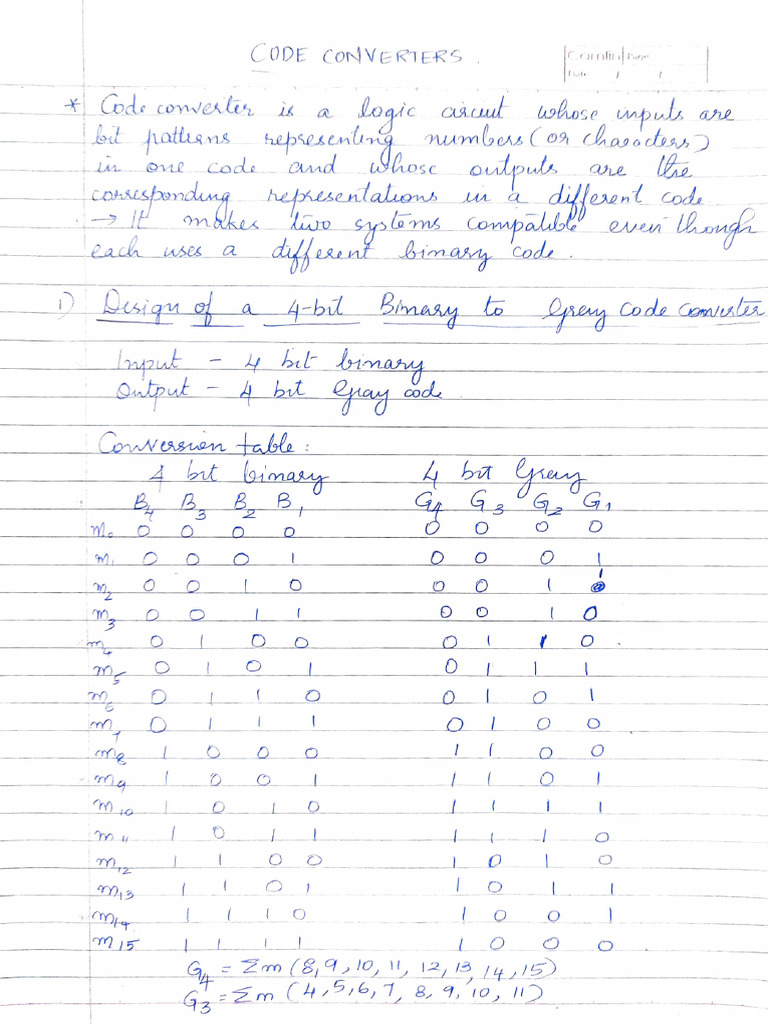 CODE CONVERTERS.
Camlin Page
Date / /
* Code converter is a logic circuit whose inputs are
bit patterns representing numbers (or characters)
in one code and whose outputs are the
corresponding representations in a different code
→ It makes two systems compatible even though
each uses a different binary code.
1) Design of a 4-bit Binary to Gray Code Converter
Input - 4 bit binary
Output - 4 bit Gray code
Conversion table:
4 bit binary 4 bit Gray
B4 B3 B2 B1 G4 G3 G2 G1
m0 0 0 0 0 0 0 0 0
m1 0 0 0 1 0 0 0 1
m2 0 0 1 0 0 0 1 1
m3 0 0 1 1 0 0 1 0
m4 0 1 0 0 0 1 1 0
m5 0 1 0 1 0 1 1 1
m6 0 1 1 0 0 1 0 1
m7 0 1 1 1 0 1 0 0
m8 1 0 0 0 1 1 0 0
m9 1 0 0 1 1 1 0 1
m10 1 0 1 0 1 1 1 1
m11 1 0 1 1 1 1 1 0
m12 1 1 0 0 1 0 1 0
m13 1 1 0 1 1 0 1 1
m14 1 1 1 0 1 0 0 1
m15 1 1 1 1 1 0 0 0
G4 = Σm (8,9,10,11,12,13,14,15)
G3 = Σm (4,5,6,7,8,9,10,11)